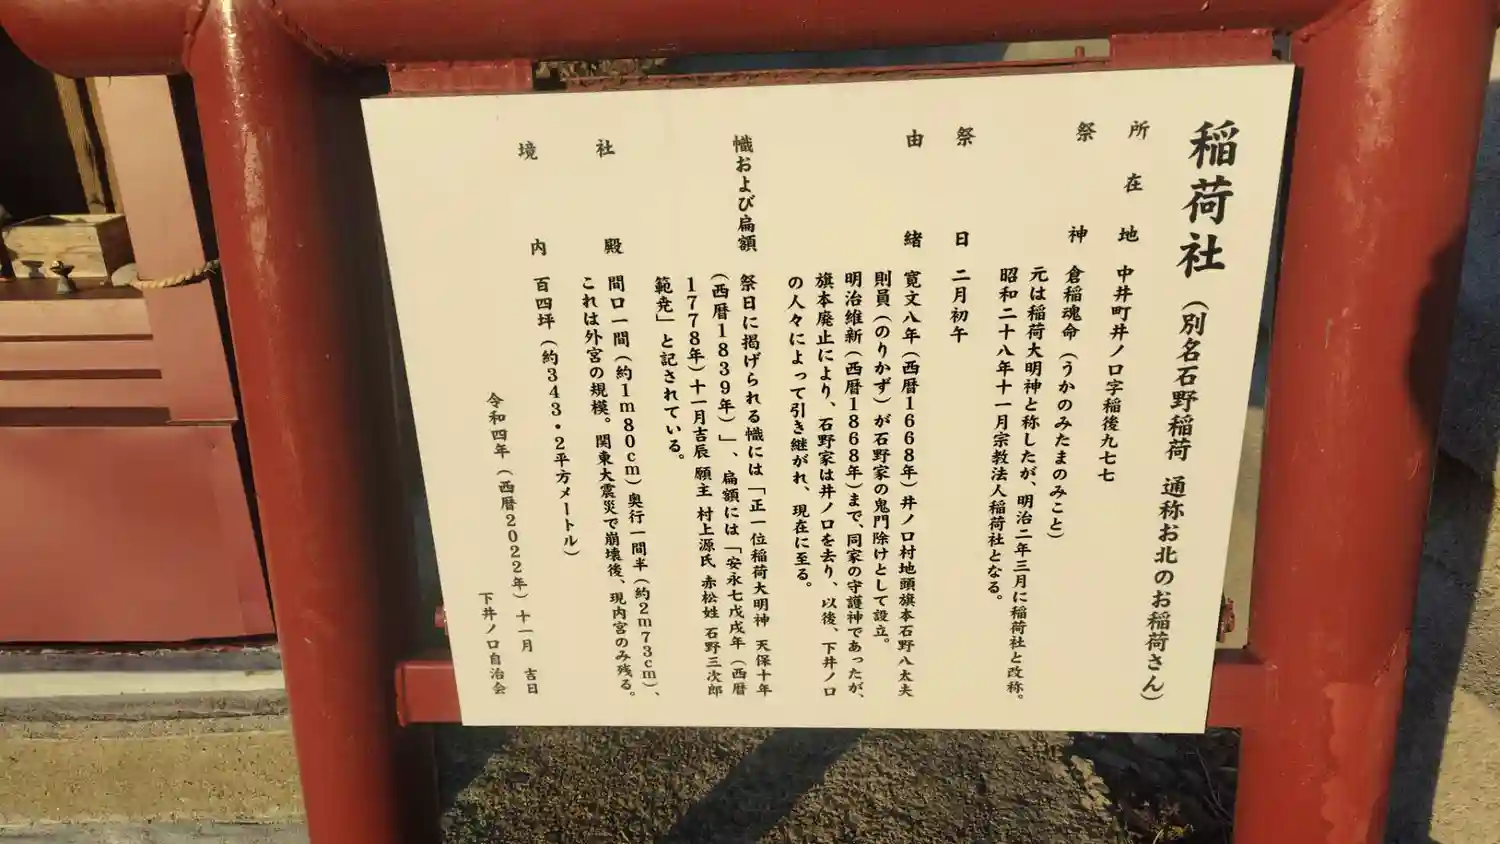 稲荷社（別名石野稲荷 通称お北のお稲荷さん）
所在地 中井町井ノ口字稲後九七七
祭神 倉稲魂命（うかのみたまのみこと）
元は稲荷大明神と称したが、明治二年三月に稲荷社と改称。
昭和二十八年十一月宗教法人稲荷社となる。
祭日 二月初午
由緒 寛文八年（西暦1668年）井ノ口村地頭旗本石野八太夫
則員（のりかず）が石野家の鬼門除けとして設立。
明治維新（西暦1868年）まで、同家の守護神であったが、
旗本廃止により、石野家は井ノ口を去り、以後、下井ノロ
の人々によって引き継がれ、現在に至る。
幟および扁額 祭日に掲げられる幟には「正一位稲荷大明神 天保十年
（西暦1839年）」、扁額には「安永七戊戌年（西暦
1778年）十一月吉辰 願主 村上源氏 赤松姓 石野三次郎
範尭」と記されている。
社殿 間口一間（約1m80cm）奥行一間半（約2m73cm）、
これは外宮の規模。関東大震災で崩壊後、現内宮のみ残る。
境内 百四坪（約343・2平方メートル）
令和四年（西暦2022年）十一月 吉日
下井ノ口自治会